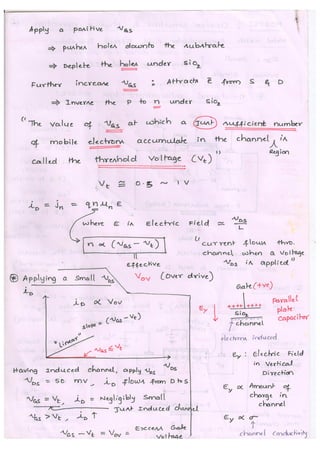 Apply a positive VGS
⇒ pushes holes downto the substrate
⇒ Deplete the holes under SiO2
Further increase VGS : Attracts ē from S & D
⇒ Inverse the P to n under SiO2
"The value of VGS at which a just sufficient number
of mobile electron accumulate in the channel is
Region
called the threshold Voltage (Vt)"
Vt ≅ 0.5 ~ 1V
iD = jn = q n μn E
where E is Electric Field = VDS/L
n ∝ (VGS - Vt)
"Current flows thro.
channel when a Voltage
VDS is applied"
effective
VOV (Over drive)
* Applying a Small VDS
iD
iD ∝ VOV
"linear"
slope = (VGS - Vt)
VGS ≤ Vt
VDS
Gate (+ve)
Ey
++++ ++++
SiO2
channel
Parallel
plate
capacitor
electron induced
Ey : Electric Field
in Vertical
Direction
Ey ∝ Amount of
charge in
channel
Ey ∝ σ
channel conductivity
Having Induced channel, apply VDS
VDS = 50 mv, iD flows from D to S
VGS = Vt, iD = Negligibly Small
Just Induced channel
VGS > Vt, iD ↑
VGS - Vt = VOV = Excess Gate
Voltage